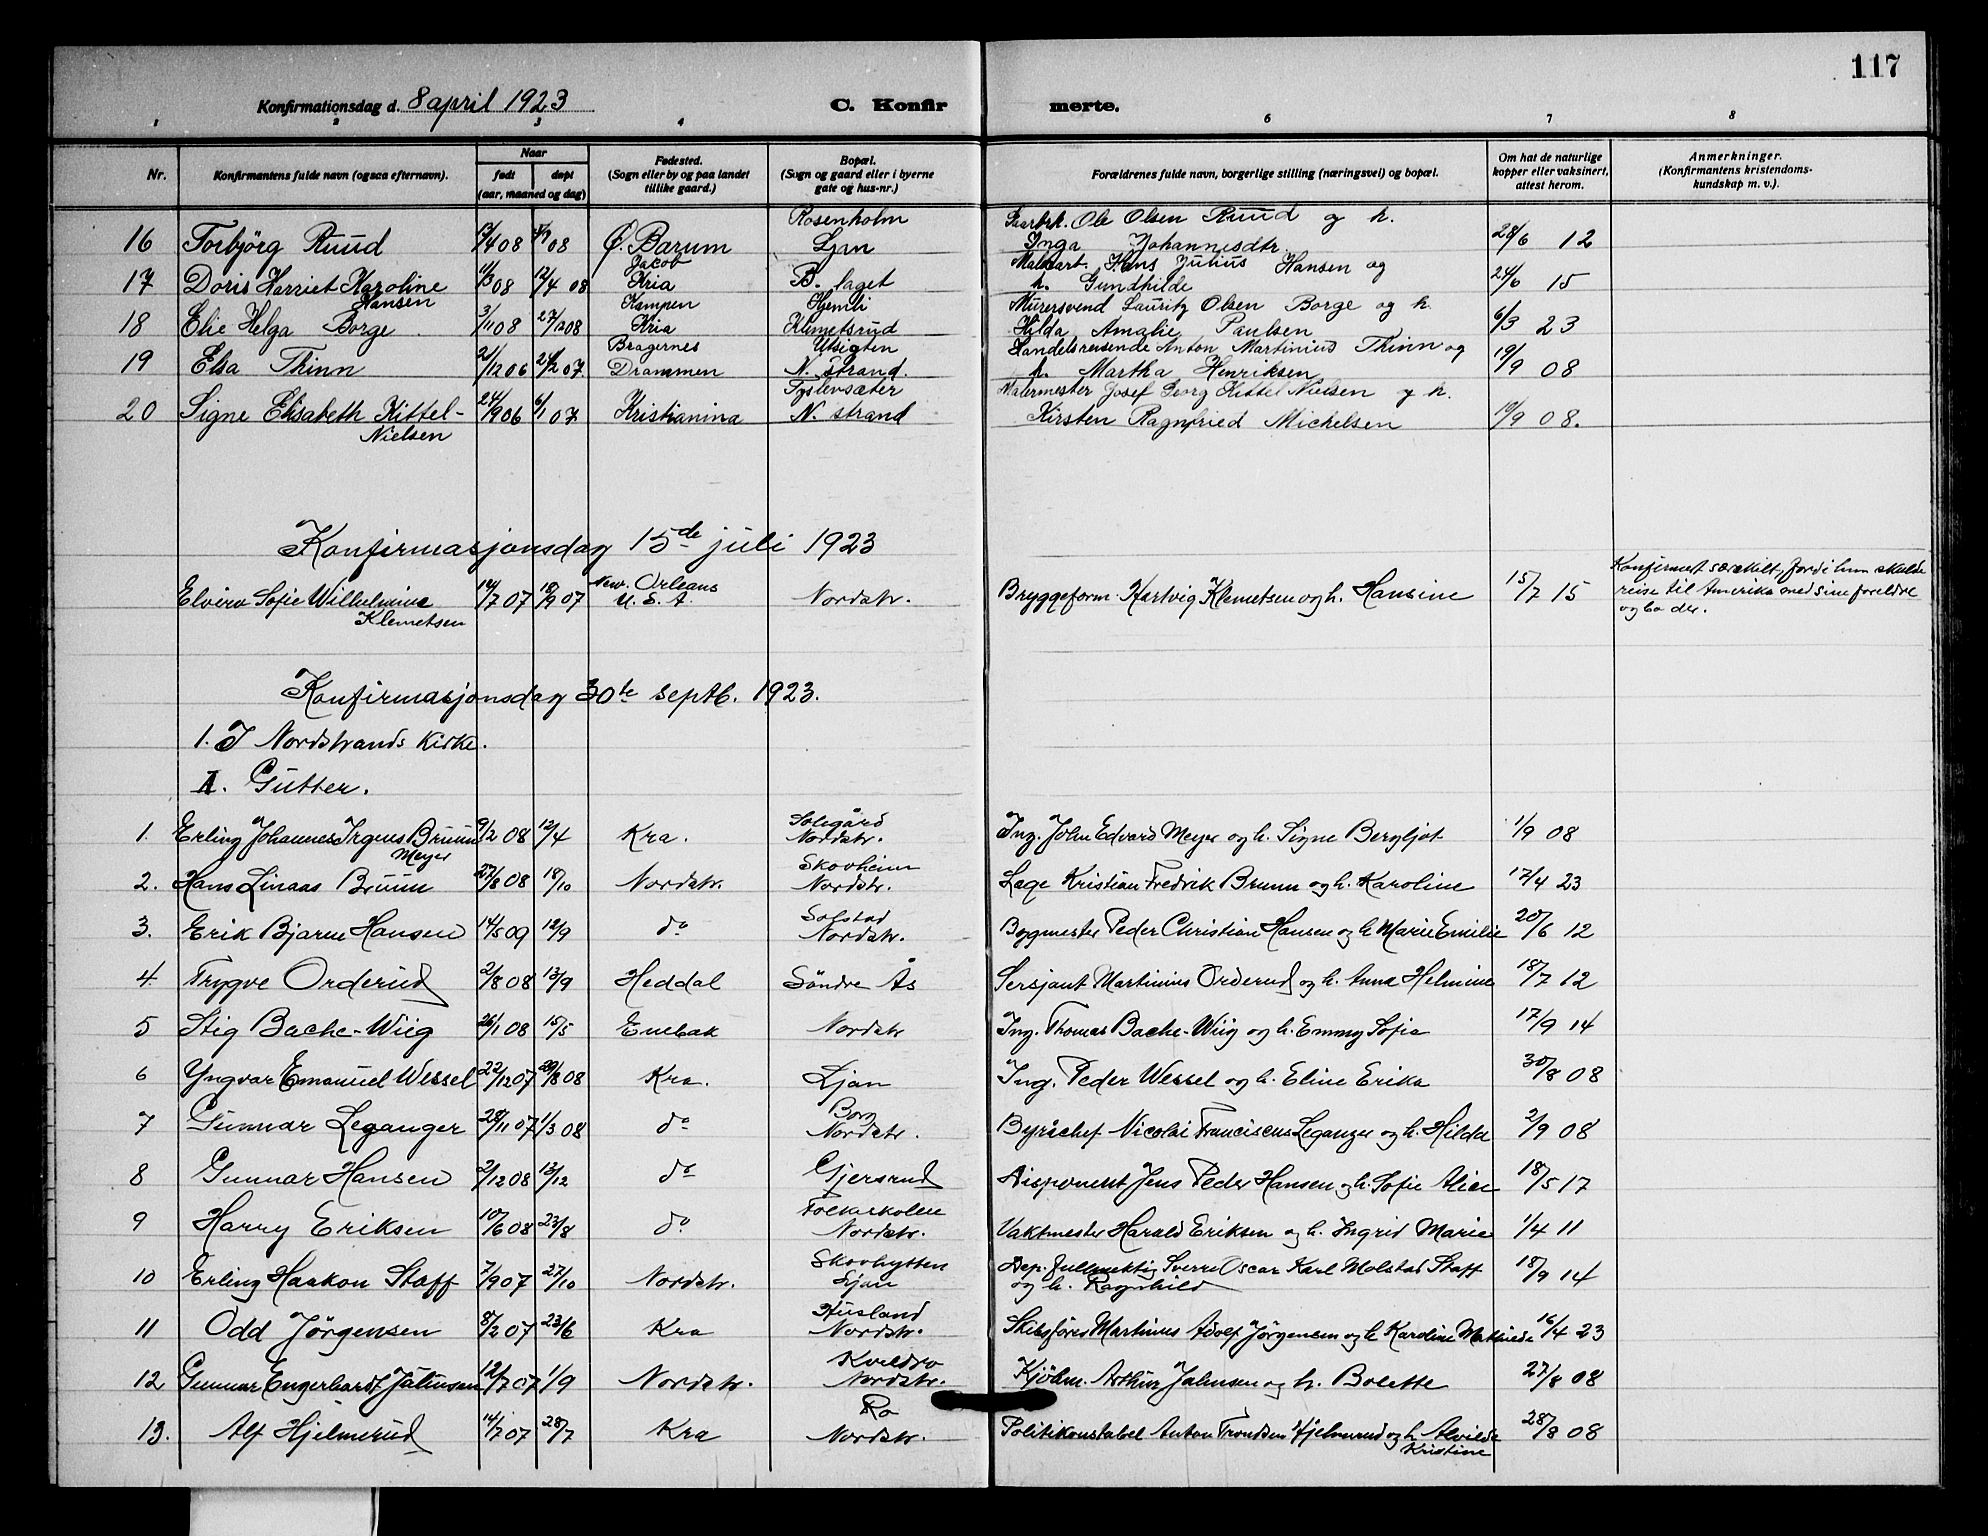 117
Konfirmationsdag d. 8 april 1923 C. Konfirmerte.
1 2 3 4 6 7 8
Nr. Konfirmantens fulde navn (ogsaa efternavn). Naar født døpt (aar, maaned og dag) Fødested. (Sogn eller by og paa landet tillike gaard.) Bopæl. (Sogn og gaard eller i byerne gate og hus-nr.) Forældrenes fulde navn, borgerlige stilling (næringsvei) og bopæl. Om hat de naturlige kopper eller vaksinert, attest herom. Anmerkninger. (Konfirmantens kristendomskundskap m. v.).
Rosenholm Ole Olsen Ruud og h.
16 Torbjörg Ruud /4 08 08 Ö. Bærum Ljan Inga Johannesdtr. 28/6 12
Jacob Hans Julius Hansen og
17 Doris Harriet Karoline 11/3 08 12/4 08 Kria B. laget h. Gundhilde 24/6 15
Hansen Kampen Hjemli Murersvend Lauritz Olsen Borge og h.
18 Elie Helga Borge 3/11 08 27/12 08 Kria Klemetsrud Hilda Amalie Paulsen 6/3 23
Bragernes Utsigten Handelsreisende Anton Martinius Thinn og
19 Elsa Thinn 21/12 06 24/2 07 Drammen N. Strand. h. Martha Henriksen 19/9 08
Malermester Josef Georg Kittel Nielsen og h.
20 Signe Elisabeth Kittel- 24/9 06 6/1 07 Kristianina N. strand Kirsten Ragnfried Michelsen 19/9 08.
Nielsen
Konfirmasjonsdag 15de juli 1923
New. Orleans Konfirmert særskilt, fordi hun skulde
Elvira Sofie Wilhelmine 14/7 07 18/9 07 U. S. A. Nordstr. Bryggeform. Hartvig Klemetsen og h. Hansine 15/7 15 reise til Amerika med sine foreldre
Klemetsen og bo der.
Konfirmasjonsdag 30te septb. 1923.
1. I Nordstrands Kirke.
1. Gutter.
Solgård
1. Erling Johannes Irgens Bruun 9/2 08 12/4 Kra. Nordstr. Ing. John Edvard Meyer og h. Signe Bergljot 1/9 08
Meyer Skovheim
2. Hans Linaas Bruun 27/8 08 18/10 Nordstr. Nordstr. Lege Kristian Fredrik Bruun og h. Karoline 17/4 23
Solstad
3. Erik Bjarne Hansen 14/5 09 12/9 do Nordstr. Bygmester Peder Christian Hansen og h Marie Emilie 20/6 12
4. Trygve Orderud 2/8 08 13/9 Heddal Söndre Ås Sersjant Martinius Orderud og h. Anna Helmine 18/7 12
5 Stig Bache-Wiig 26/1 08 15/5 Enebak Nordstr Ing. Thomas Bache-Wiig og h. Emmy Sofie 17/9 14
6 Yngvar Emanuel Wessel 22/12 07 29/8 08 Kra. Ljan Ing. Peder Wessel og h. Eline Erika 30/8 08
Borg
7 Gunnar Leganger 28/11 07 1/3 08 do Nordstr. Byråchef. Nicolai Franciscus Leganger og h. Hilda 2/9 08
8 Gunnar Hansen 2/12 08 13/12 do Gjersrud Disponent Jens Peder Hansen og h. Sofie Alice 18/5 17
Folkeskolen
9 Harry Eriksen 10/6 08 23/8 do Nordstr. Vaktmester Harald Eriksen og h. Ingrid Marie 1/4 11
Skovhytten Dep. fullmektig Sverre Oscar Karl Molstad Staff
10 Erling Haakon Staff 7/9 07 27/10 Nordstr. Ljan og h. Ragnhild 18/9 14
Husland
11 Odd Jörgensen 8/2 07 23/6 Kra Nordstr. Skibsförer Martinus Adolf Jörgensen og h Karoline Mathilde 16/4 23
Kveldro
12 Gunnar Engerhardt Jahnsen 12/7 07 1/9 Nordstr. Nordstr. Kjöbm. Arthur Jahnsen og h. Bolette 27/8 08
Ro
13. Alf Hjelmerud 14/7 07 28/7 Kra Nordstr. Politikonstabel Anton Trondsen Hjelmerud og h Alvilde 28/8 08
Kristine